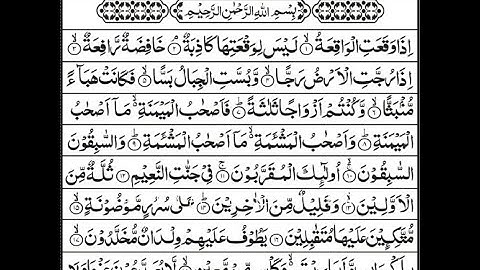 بِسْمِ اللهِ الرَّحْمٰنِ الرَّحِيْمِ
اِذَا وَقَعَتِ الْوَاقِعَةُ ۙ﴿۱﴾ لَيْسَ لِوَقْعَتِهَا كَاذِبَةٌ ۘ﴿۲﴾ خَافِضَةٌ رَّافِعَةٌ ۙ﴿۳﴾
اِذَا رُجَّتِ الْاَرْضُ رَجًّا ۙ﴿۴﴾ وَّبُسَّتِ الْجِبَالُ بَسًّا ۙ﴿۵﴾ فَكَانَتْ هَبَآءً
مُّنْۢبَثًّا ۙ﴿۶﴾ وَّكُنْتُمْ اَزْوَاجًا ثَلٰثَةً ؕ﴿۷﴾ فَاَصْحٰبُ الْمَيْمَنَةِ ۙ مَاۤ اَصْحٰبُ
الْمَيْمَنَةِ ؕ﴿۸﴾ وَاَصْحٰبُ الْمَشْـَٔمَةِ ۙ مَاۤ اَصْحٰبُ الْمَشْـَٔمَةِ ؕ﴿۹﴾ وَالسّٰبِقُوْنَ
السّٰبِقُوْنَ ۚۙ﴿۱۰﴾ اُولٰٓئِكَ الْمُقَرَّبُوْنَ ۚ﴿۱۱﴾ فِيْ جَنّٰتِ النَّعِيْمِ ﴿۱۲﴾ ثُلَّةٌ مِّنَ
الْاَوَّلِيْنَ ۙ﴿۱۳﴾ وَقَلِيْلٌ مِّنَ الْاٰخِرِيْنَ ؕ﴿۱۴﴾ عَلٰى سُرُرٍ مَّوْضُوْنَةٍ ۙ﴿۱۵﴾
مُّتَّكِـِٕيْنَ عَلَيْهَا مُتَقٰبِلِيْنَ ﴿۱۶﴾ يَطُوْفُ عَلَيْهِمْ وِلْدَانٌ مُّخَلَّدُوْنَ ۙ﴿۱۷﴾